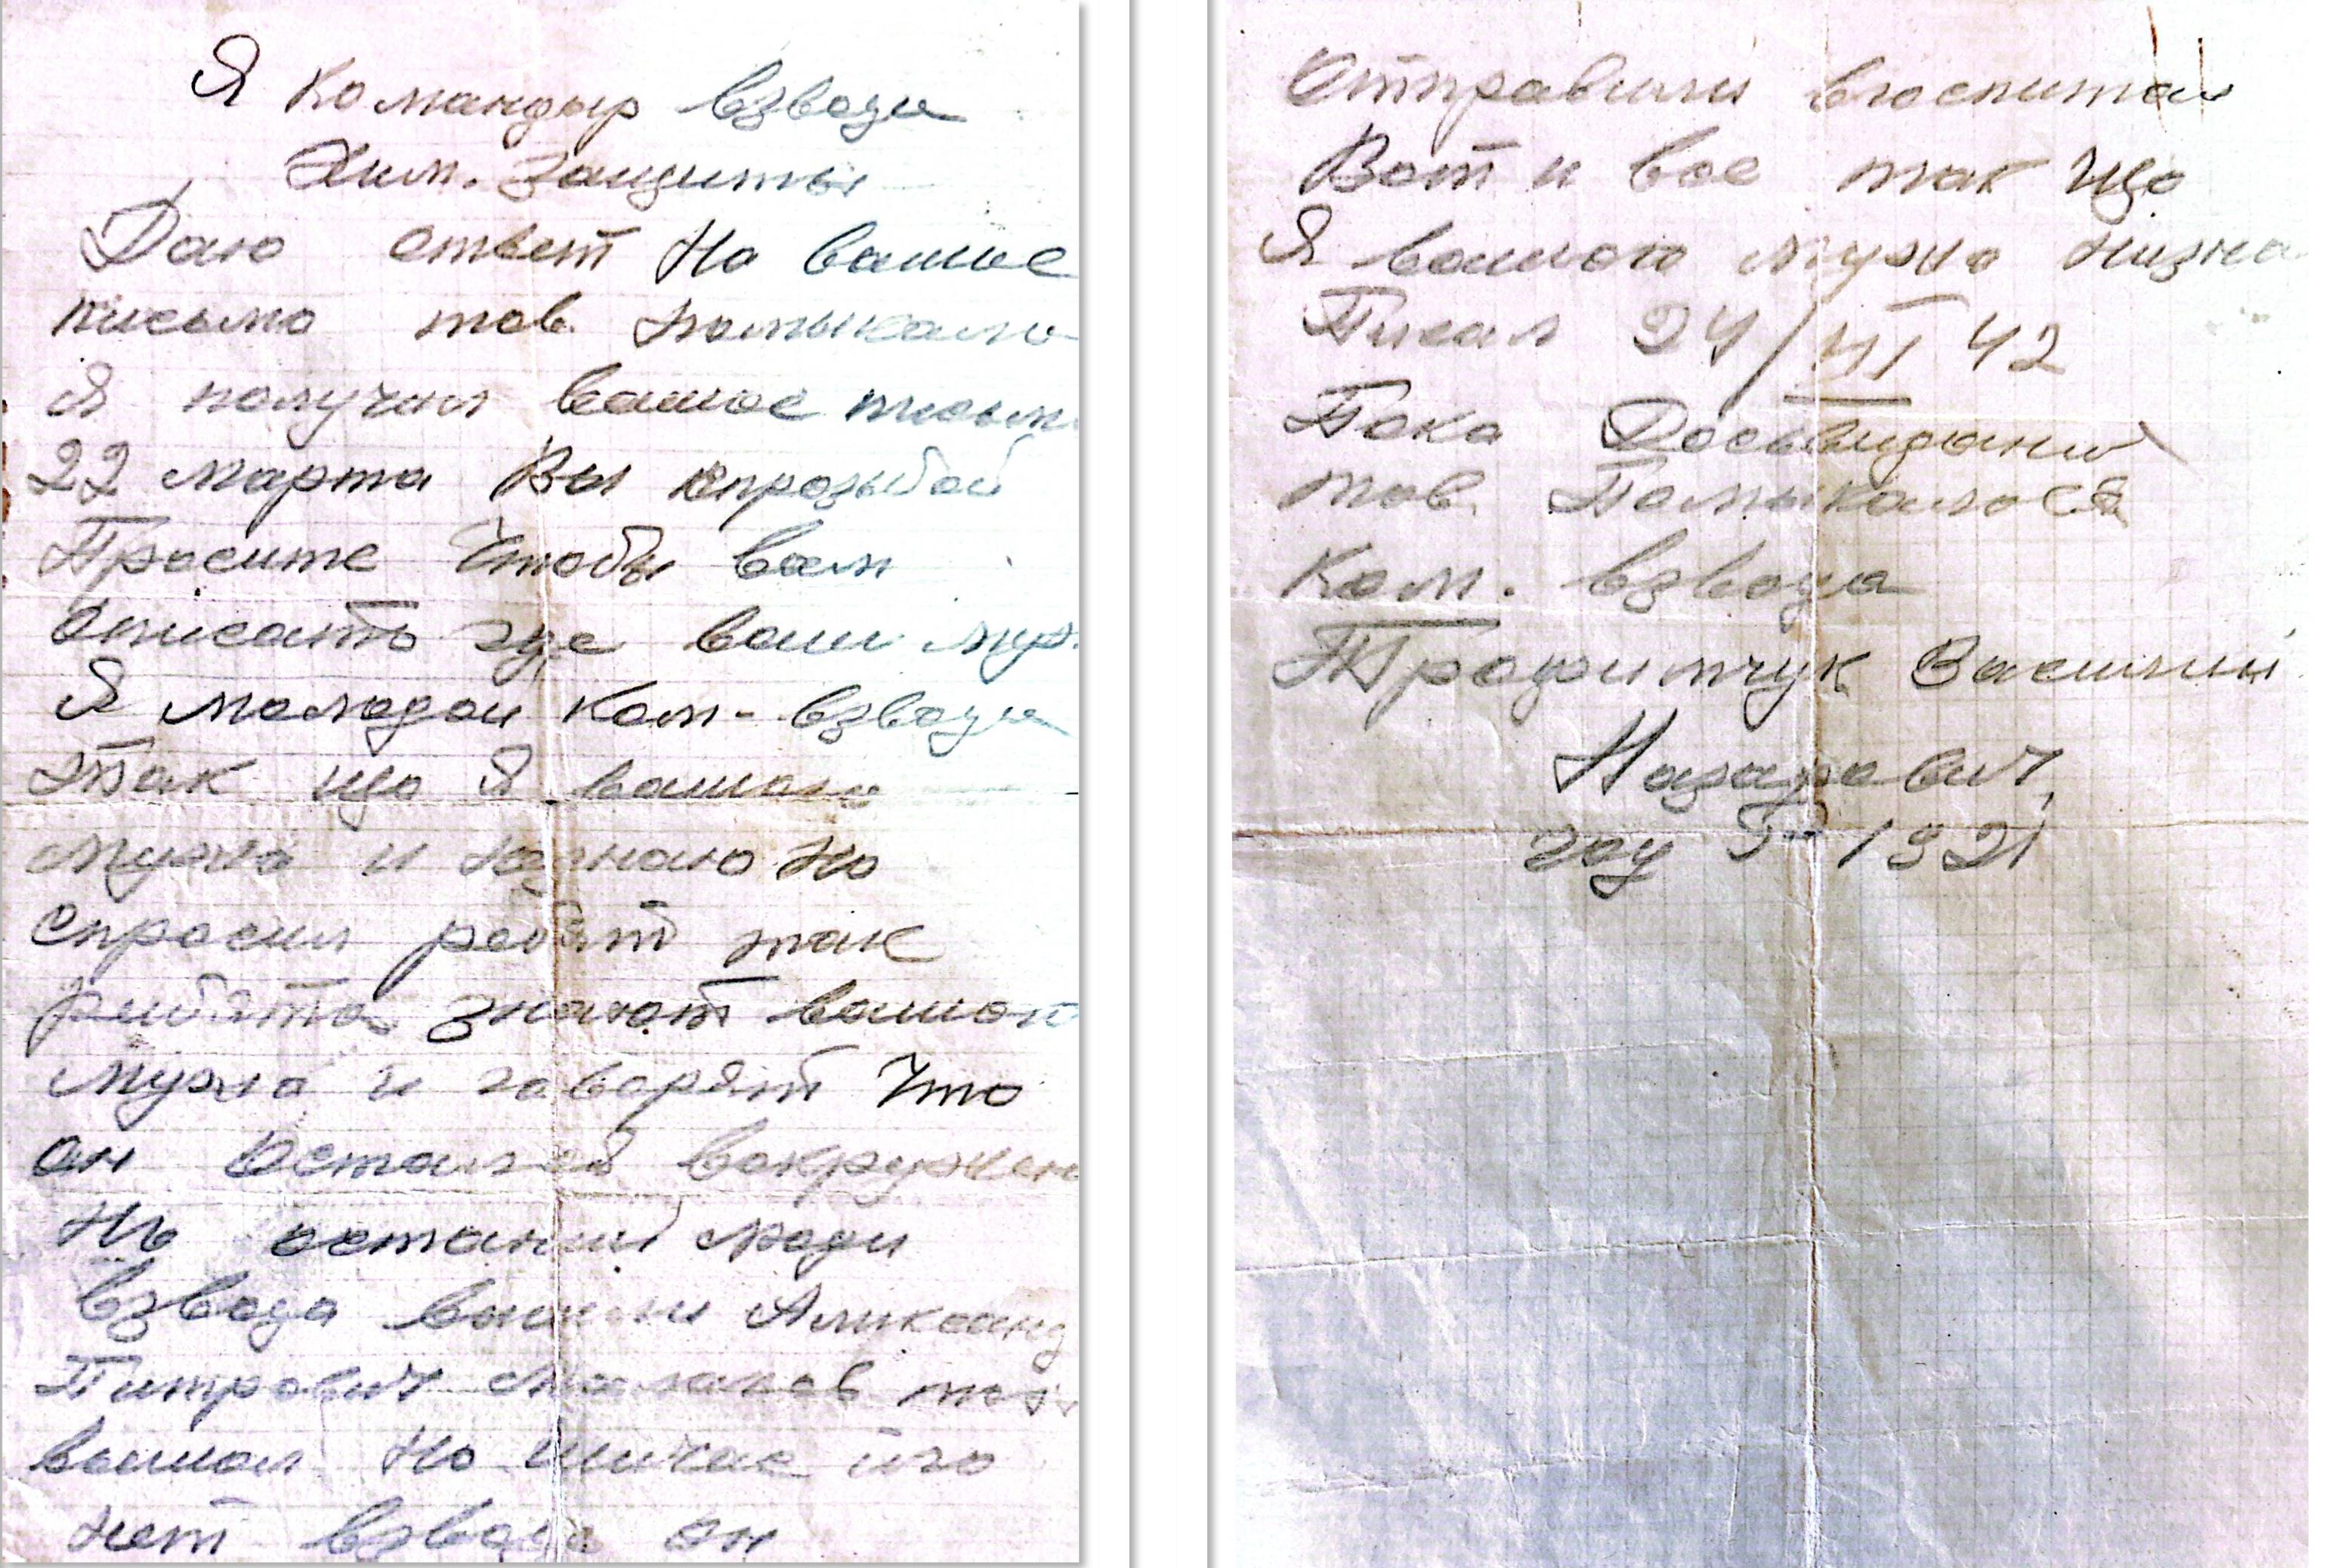 Я Командыр взвода
Хим. защиты
Даю ответ На вашые
письмо тов. Помыкало
Я получил вашое письм
22 марта Вы спрозьбой
Просите Чтобы вам
описать где ваш муж
Я молодой Ком- взвода
Так що Я вашого
мужа и незнаю но
Спросил ребят так
рибята знают вашого
Мужа и говорят Что
он Остался вокружен
Но останий люди
взвода вышли Аликсанд
Питрович тоже
вышол Но сичас иго
нет взвода он
Отправили вгоспитал
Вот и все так що
Я вашого мужа низна
Писал 24/III 42
Пока Досьвидани
тов. Помыкалося
Ком. взвода
Трофимчук Василий
Назарович
год 1921